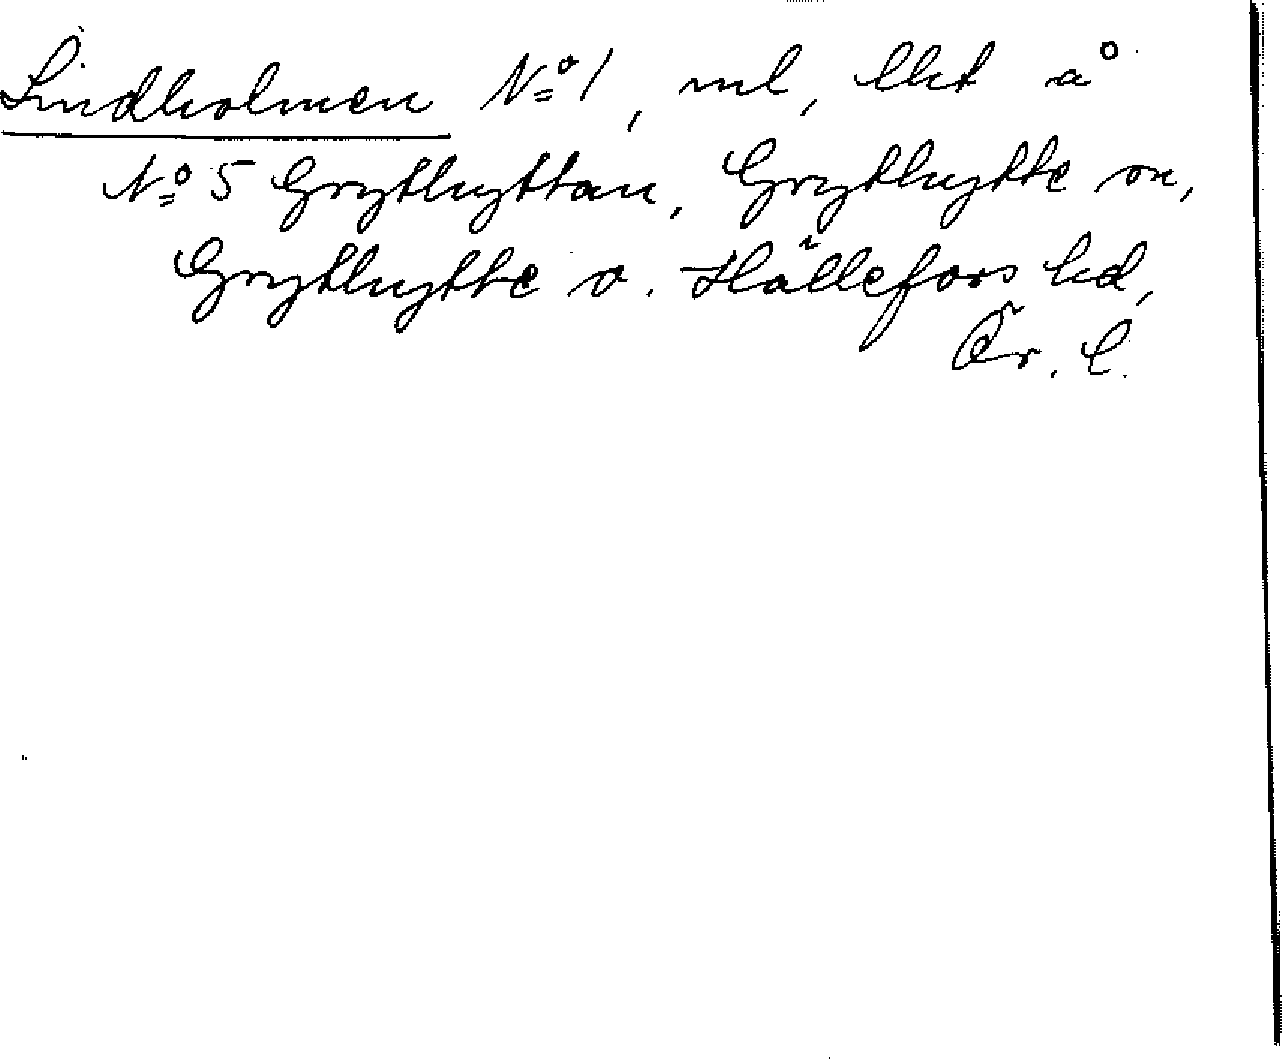 Lindholmen Nº 1, ml, lht å
Nº 5 Grythyttan, Grythytte sn,
Grythytte o. Hällefors hd,
Ör. l.